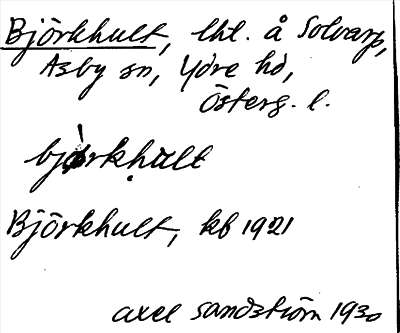 Björkhult, lht. å Solvarp,
Asby sn, Ydre hd,
Österg. l.
bjö̀rkhu̇lt
Björkhult, kb 1921
Axel Sandström 1930